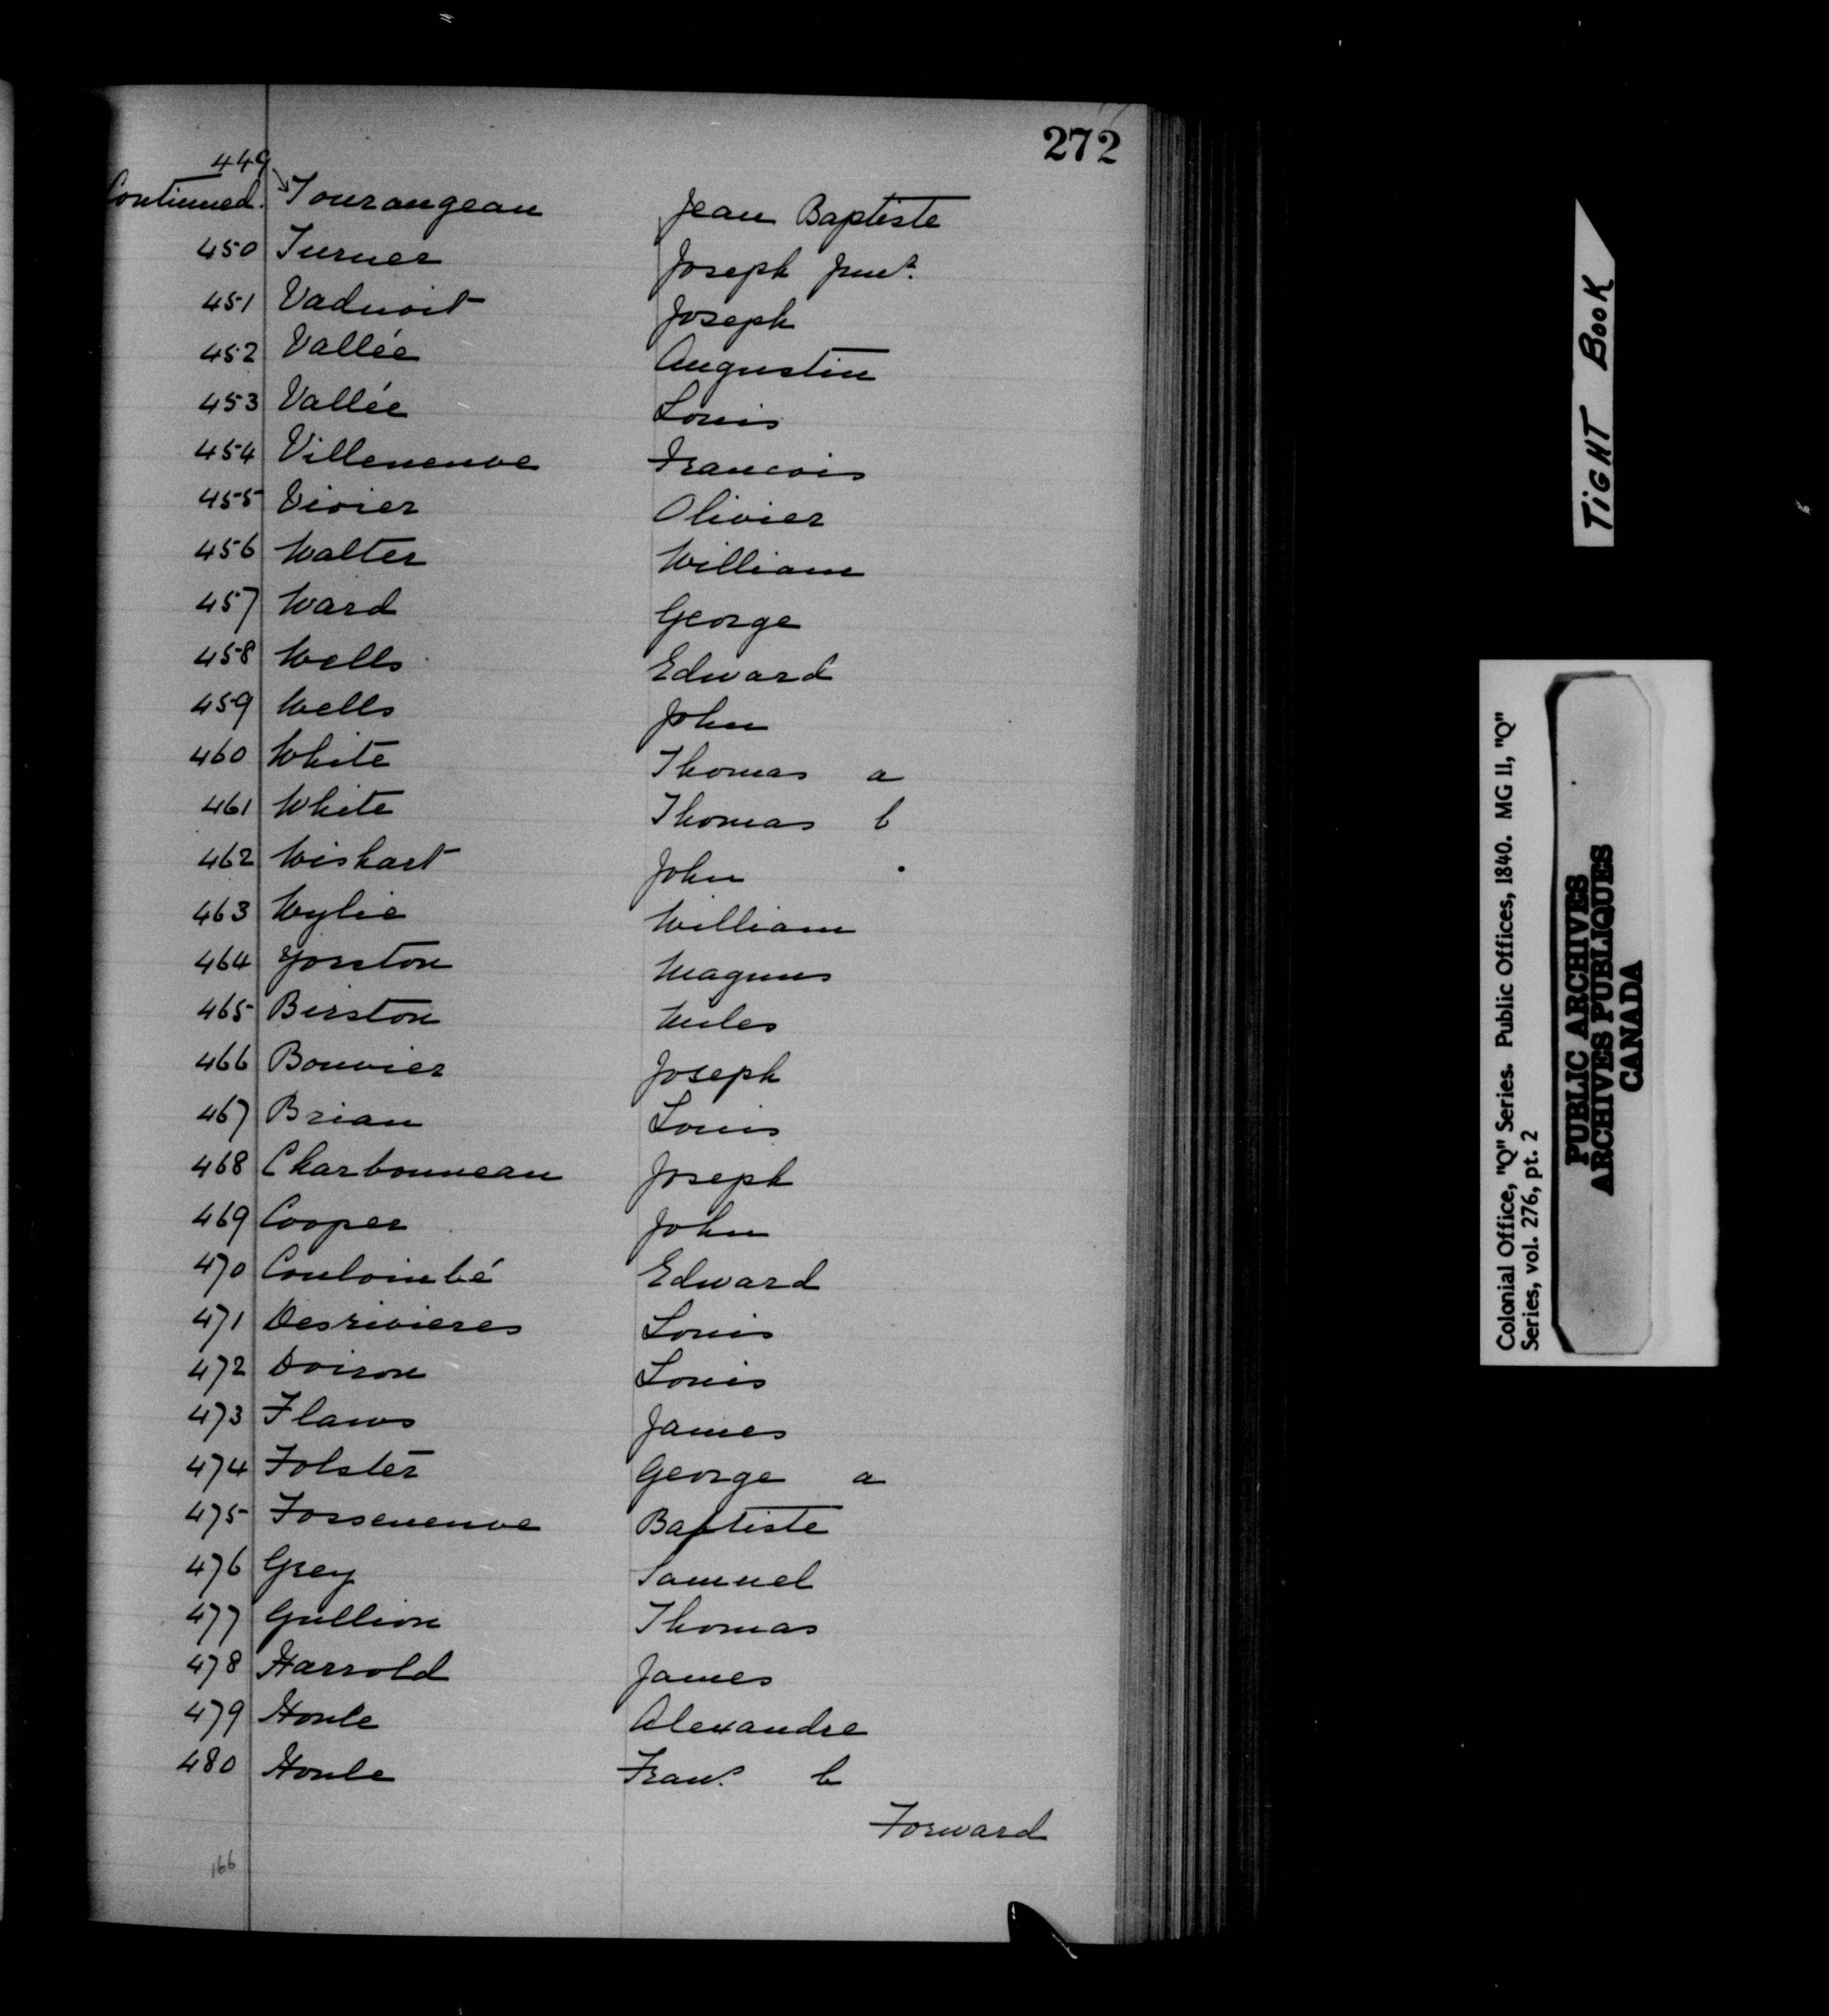 272
449
Continued. Tourangeau Jean Baptiste
450 Turner Joseph Junr.
451 Vadnoit Joseph
452 Vallée Augustin
453 Vallée Louis
454 Villeneuve Francois
455 Vivier Olivier
456 Walter William
457 Ward George
458 Wells Edward
459 Wells John
460 White Thomas a
461 White Thomas b
462 Wishart John
463 Wylie William
464 Yorston Magnus
465 Birston Miles
466 Bouvier Joseph
467 Brian Louis
468 Charbonneau Joseph
469 Cooper John
470 Couloimbé Edward
471 Desrivieres Louis
472 Doiron Louis
473 Flaws James
474 Folster George a
475 Forseneuve Baptiste
476 Grey Samuel
477 Gullion Thomas
478 Harrold James
479 Houle Alexandre
480 Houle Frans. b
Forward
166
TIGHT BOOK
Colonial Office, "Q" Series. Public Offices, 1840. MG 11, "Q"
Series, vol. 276, pt. 2
PUBLIC ARCHIVES
ARCHIVES PUBLIQUES
CANADA